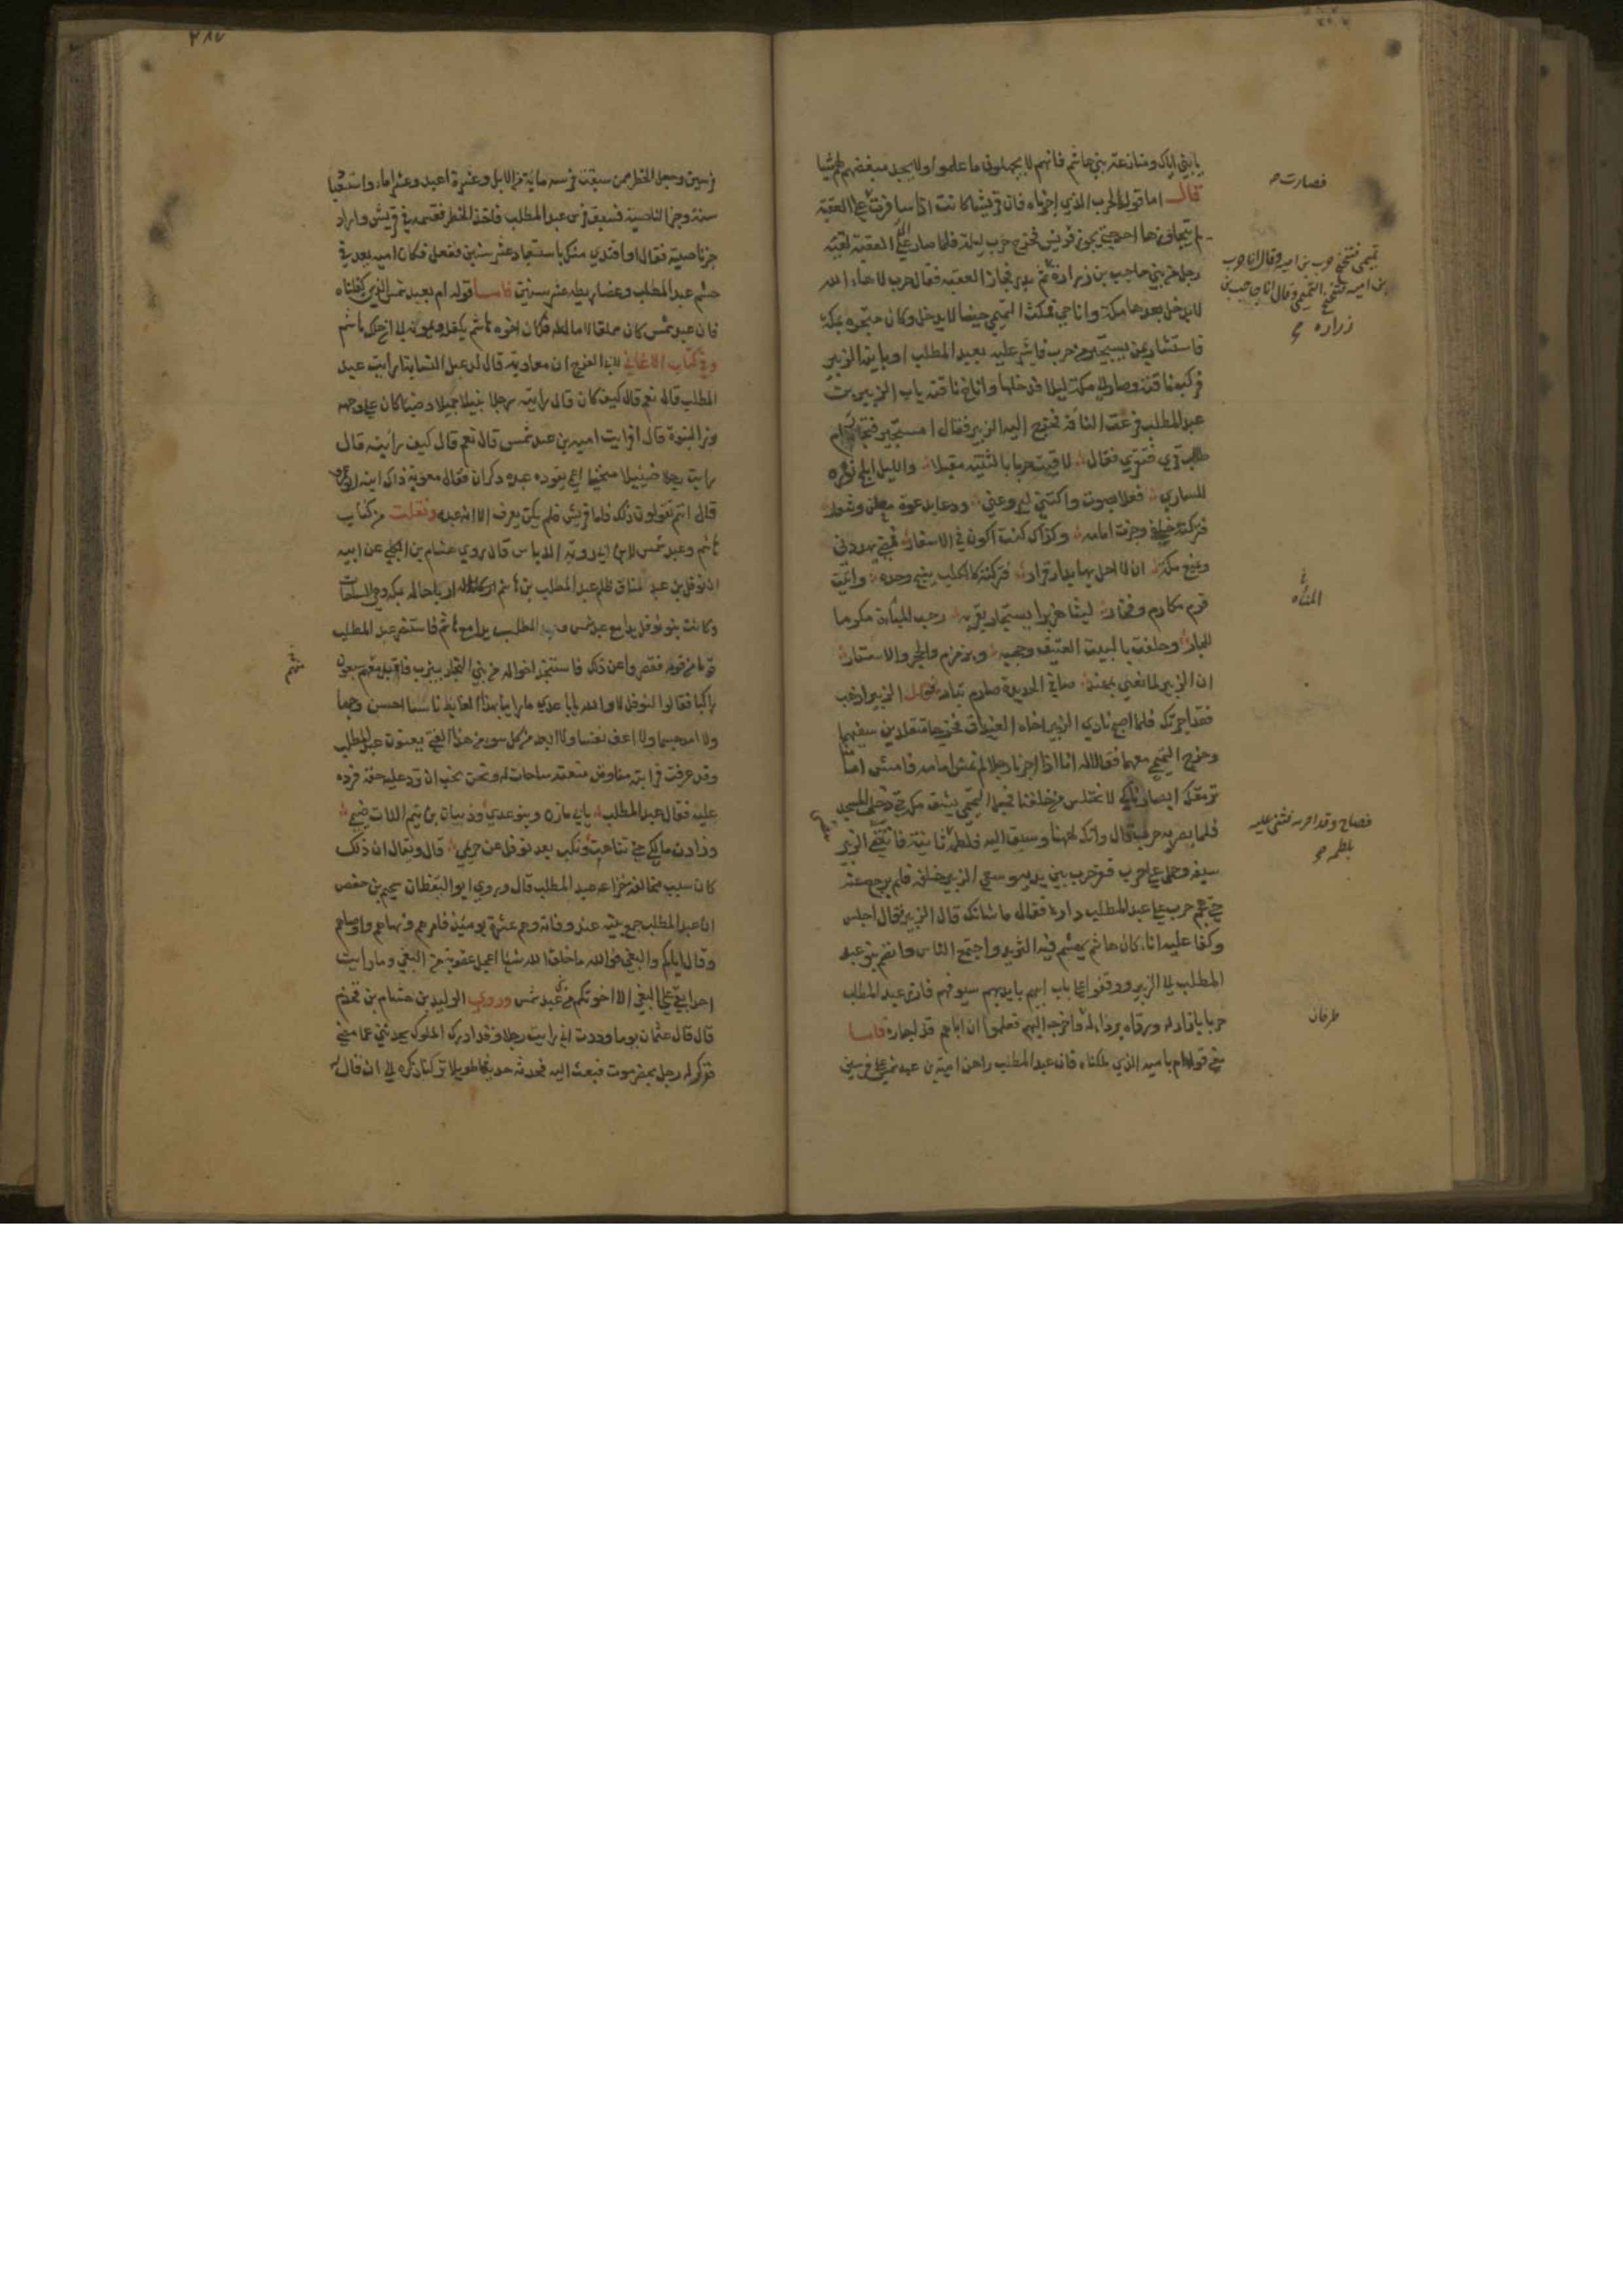 يا بني اياك ومنازعة بني هاشم فانهم لا يجهلون ما علموا ولا يجد مبغضهم لهم شيا
قال اما قوله الحرب الذي اجرناه فان قريشا كانت اذا سافرت على العقبة
لم يتجاوزها احد حتى تجوز قريش فخرج حرب ليلة فلما صار على العقبة لقيه
رجل من بني حاجب بن زرارة ثم بدر فجاز العقبة فقال حرب لاها الله
لا يدخل بعدها مكة وانا حي فمكث التميمي حينا لا يدخل وكان متجره بمكة
فاستشار بمن يستجير من حرب فاشير عليه بعبد المطلب او بابنه الزبير
فركب ناقته وصار الى مكة ليلا فدخلها واناخ ناقته بباب الزبير بن
عبد المطلب فرغت الناقة فخرج اليه الزبير فقال امستجير فتجار ام
طالب قرى فتقرى فقال لاقيت حربا بالثنية مقبلا والليل ابلج نوره
للساري فعلا بصوت واكتنى ليروعني ودعا بدعوة معلن وشعار
فتركته خلفي وجزت امامه وكذاك كنت اكون في الاسفار فمضى يهددني
ويمنع مكة ان لا احل بها بدار قرار فتركته كالكلب ينبح وحده واتيت
قرم مكارم وفخار ليثا هزبرا يستجار بقربه رحب المباءة مكرما
للجار وحلفت بالبيت العتيق وحجه وبزمزم والحجر والاستار
ان الزبير لمانعي بمهند صافي الحديدة صارم بتار فقال الزبير اذهب
فقد اجرتك فلما اصبح نادى الزبير اخاه الغيداق فخرجا متقلدين سيفيهما
وخرج التميمي معهما فقالا له انا اذا اجرنا رجلا لم نمش امامه فامش امامنا
ترمقك ابصارنا كي لا تختلس من خلفنا فجعل التميمي يشق مكة حتى دخل المسجد
فلما بصر به حرب قال وانك لههنا وسبق اليه فلطمه ثانية فانتضى الزبير
سيفه وحمل على حرب ففر حرب بين يديه وسعى الزبير خلفه فلم يرجع عنه
حتى هجم حرب على عبد المطلب داره فقال ما شانك قال الزبير فقال اجلس
وكفا عليه اناء كان هاشم يهشم فيه الثريد واجتمع الناس وانضم بنو عبد
المطلب الى الزبير ووقفوا على باب ابيهم بايديهم سيوفهم فازر عبد المطلب
حربا بازار له ورداه برداء له واخرجه اليهم فعلموا ان اباهم قد اجاره فاما
معنى قوله ام بامية الذي ملكناه فان عبد المطلب راهن امية بن عبد شمس على فرسين
فصارت
تميمي فتنحنح حرب بن امية وقال انا حرب
بن امية فتنحنح التميمي وقال انا حاجب بن
زرارة
المباه
فصاح وقد اجرنه فمشى عليه
بلطمه
طرفان
٣١٧
فرسين وجعل الخطر ممن سبقت فرسه مائة من الابل وعشرة اعبد وعشر اماء واستعباد
سنة وجز الناصية فسبق فرس عبد المطلب فاخذ الخطر فقسمه في قريش واراد
جز ناصيته فقال او افتدي منك باستعباد عشر سنين ففعل فكان امية بعد في
حشم عبد المطلب وعضاريطه عشر سنين فاما قوله ام بعبد شمس الذي كفلناه
فان عبد شمس كان مملقا لا مال له فكان اخوه هاشم يكفله ويمونه الى ان هلك هاشم
وفي كتاب الاغاني لابي الفرج ان معاوية قال لدغفل النسابة ارايت عبد
المطلب قال نعم قال كيف كان قال رايته رجلا نبيلا جميلا وضيئا كان على وجهه
نور النبوة قال افرايت امية بن عبد شمس قال نعم قال كيف رايته قال
رايت رجلا ضئيلا منحنيا اعمى يقوده عبده ذكوان فقال معوية ذاك ابنه ابو عمرو
قال انتم تقولون ذلك فاما قريش فلم يكن يعرف الا انه عبده ونقلت من كتاب
هاشم وعبد شمس لابن ابي روبة الدباس قال روى هشام بن الكلبي عن ابيه
ان نوفل بن عبد مناف ظلم عبد المطلب بن هاشم اركاحا له بمكة وهي الساحات
وكانت بنو نوفل يدا مع عبد شمس وعبد المطلب يدا مع هاشم فاستنصر عبد المطلب
قوما من قومه فقصروا عن ذلك فاستنجد اخواله من بني النجار بيثرب فاقبل معهم سبعون
راكبا فقالوا لنوفل لا والله يابا عدي ما راينا بهذا الغايط ناشئا احسن وجها
ولا امد جسما ولا اعف نفسا ولا ابعد من كل سوء من هذا الفتى يعنون عبد المطلب
وقد عرفت قرابته منا وقد منعته ساحات له ونحن نحب ان ترد عليه حقه فرده
عليه فقال عبد المطلب يابى مازن وبنو عدي وذبيان بن تيم اللات ضيمي
وذادت مالك حتى تناهت ونكب بعد نوفل عن حريمي قال ويقال ان ذلك
كان سبب مخالفة خزاعة عبد المطلب قال وروى ابو اليقظان سحيم بن حفص
ان عبد المطلب جمع بنيه عند وفاته وهم عشرة يومئذ فامرهم ونهاهم واوصاهم
وقال اياكم والبغي فوالله ما خلق الله شيئا اعجل عقوبة من البغي وما رايت
احدا بقي على البغي الا اخوتكم من عبد شمس وروى الوليد بن هشام بن قحذم
قال قال عثمان يوما وددت اني رايت رجلا قد ادرك الملوك يحدثني عما مضى
فذكر له رجل بحضرموت فبعث اليه فحدثه حديثا طويلا تركنا ذكره الى ان قال له
منهم